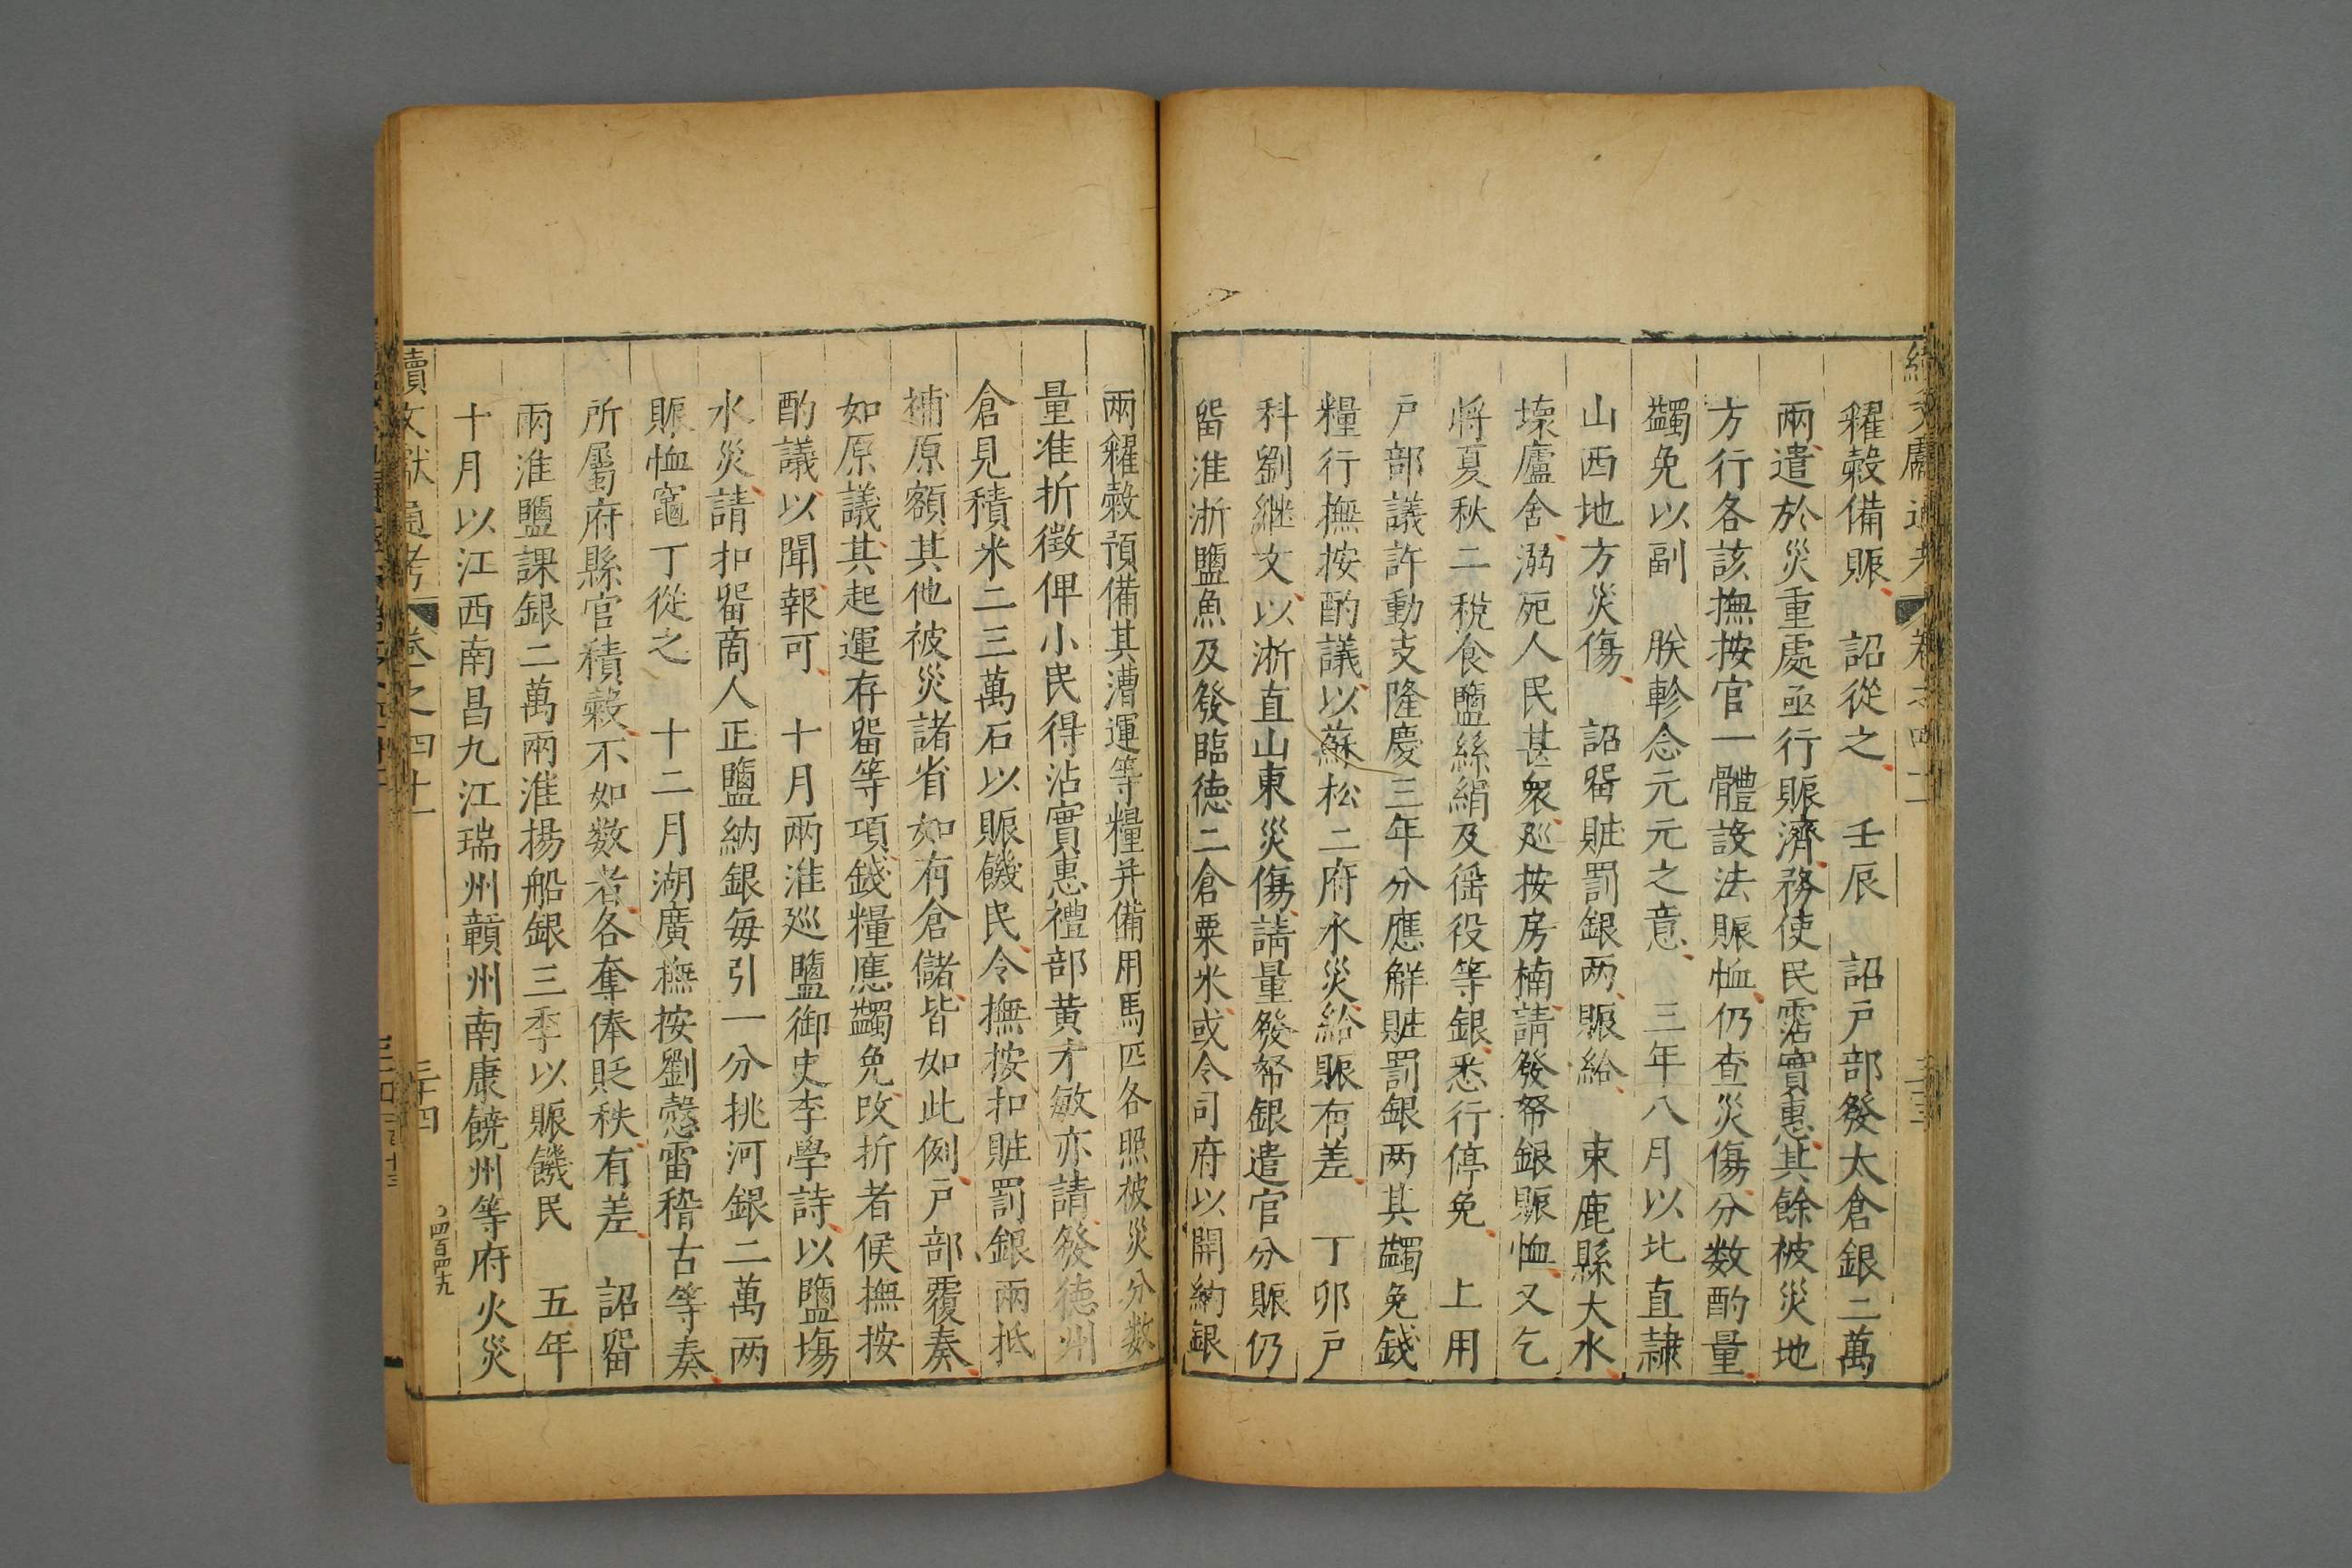 糴穀備賑 詔從之 壬辰 詔戶部發太倉銀二萬
兩遣於災重處亟行賑濟務使民霑實惠其餘被災地
方行各該撫按官一體設法賑恤仍查災傷分数酌量
蠲免以副 朕軫念元元之意 三年八月以北直隷
山西地方災傷 詔留賍罰銀两賑給 束鹿縣大水
壊廬舍溺死人民甚衆廵按房楠請發帑銀賑恤又乞
將夏秋二稅食鹽絲絹及徭役等銀悉行停免 上用
戶部議許動支隆慶三年分應解賍罰銀两其蠲免錢
糧行撫按酌議以蘇松二府水災給賑有差 丁卯戶
科劉継文以浙直山東災傷請量發帑銀遣官分賑仍
留淮浙鹽魚及發臨德二倉粟米或令司府以開納銀
兩糴穀預備其漕運等糧并備用馬匹各照被災分数
量准折徵俾小民得沾實惠禮部黄才敏亦請發德州
倉見積米二三萬石以賑饑民令撫按扣賍罰銀兩抵
補原額其他被災諸省如有倉儲皆如此例戶部覆奏
如原議其起運存留等項錢糧應蠲免改折者候撫按
酌議以聞報可 十月兩淮廵鹽御史李學詩以鹽塲
水災請扣留商人正鹽納銀每引一分挑河銀二萬两
賑恤竈丁從之 十二月湖廣撫按劉慤雷稽古等奏
所屬府縣官積穀不如数者各奪俸貶秩有差 詔留
兩淮鹽課銀二萬兩淮揚船銀三季以賑饑民 五年
十月以江西南昌九江瑞州贛州南康饒州等府火災
續文獻通考 卷之四十一 三十四
四百四九